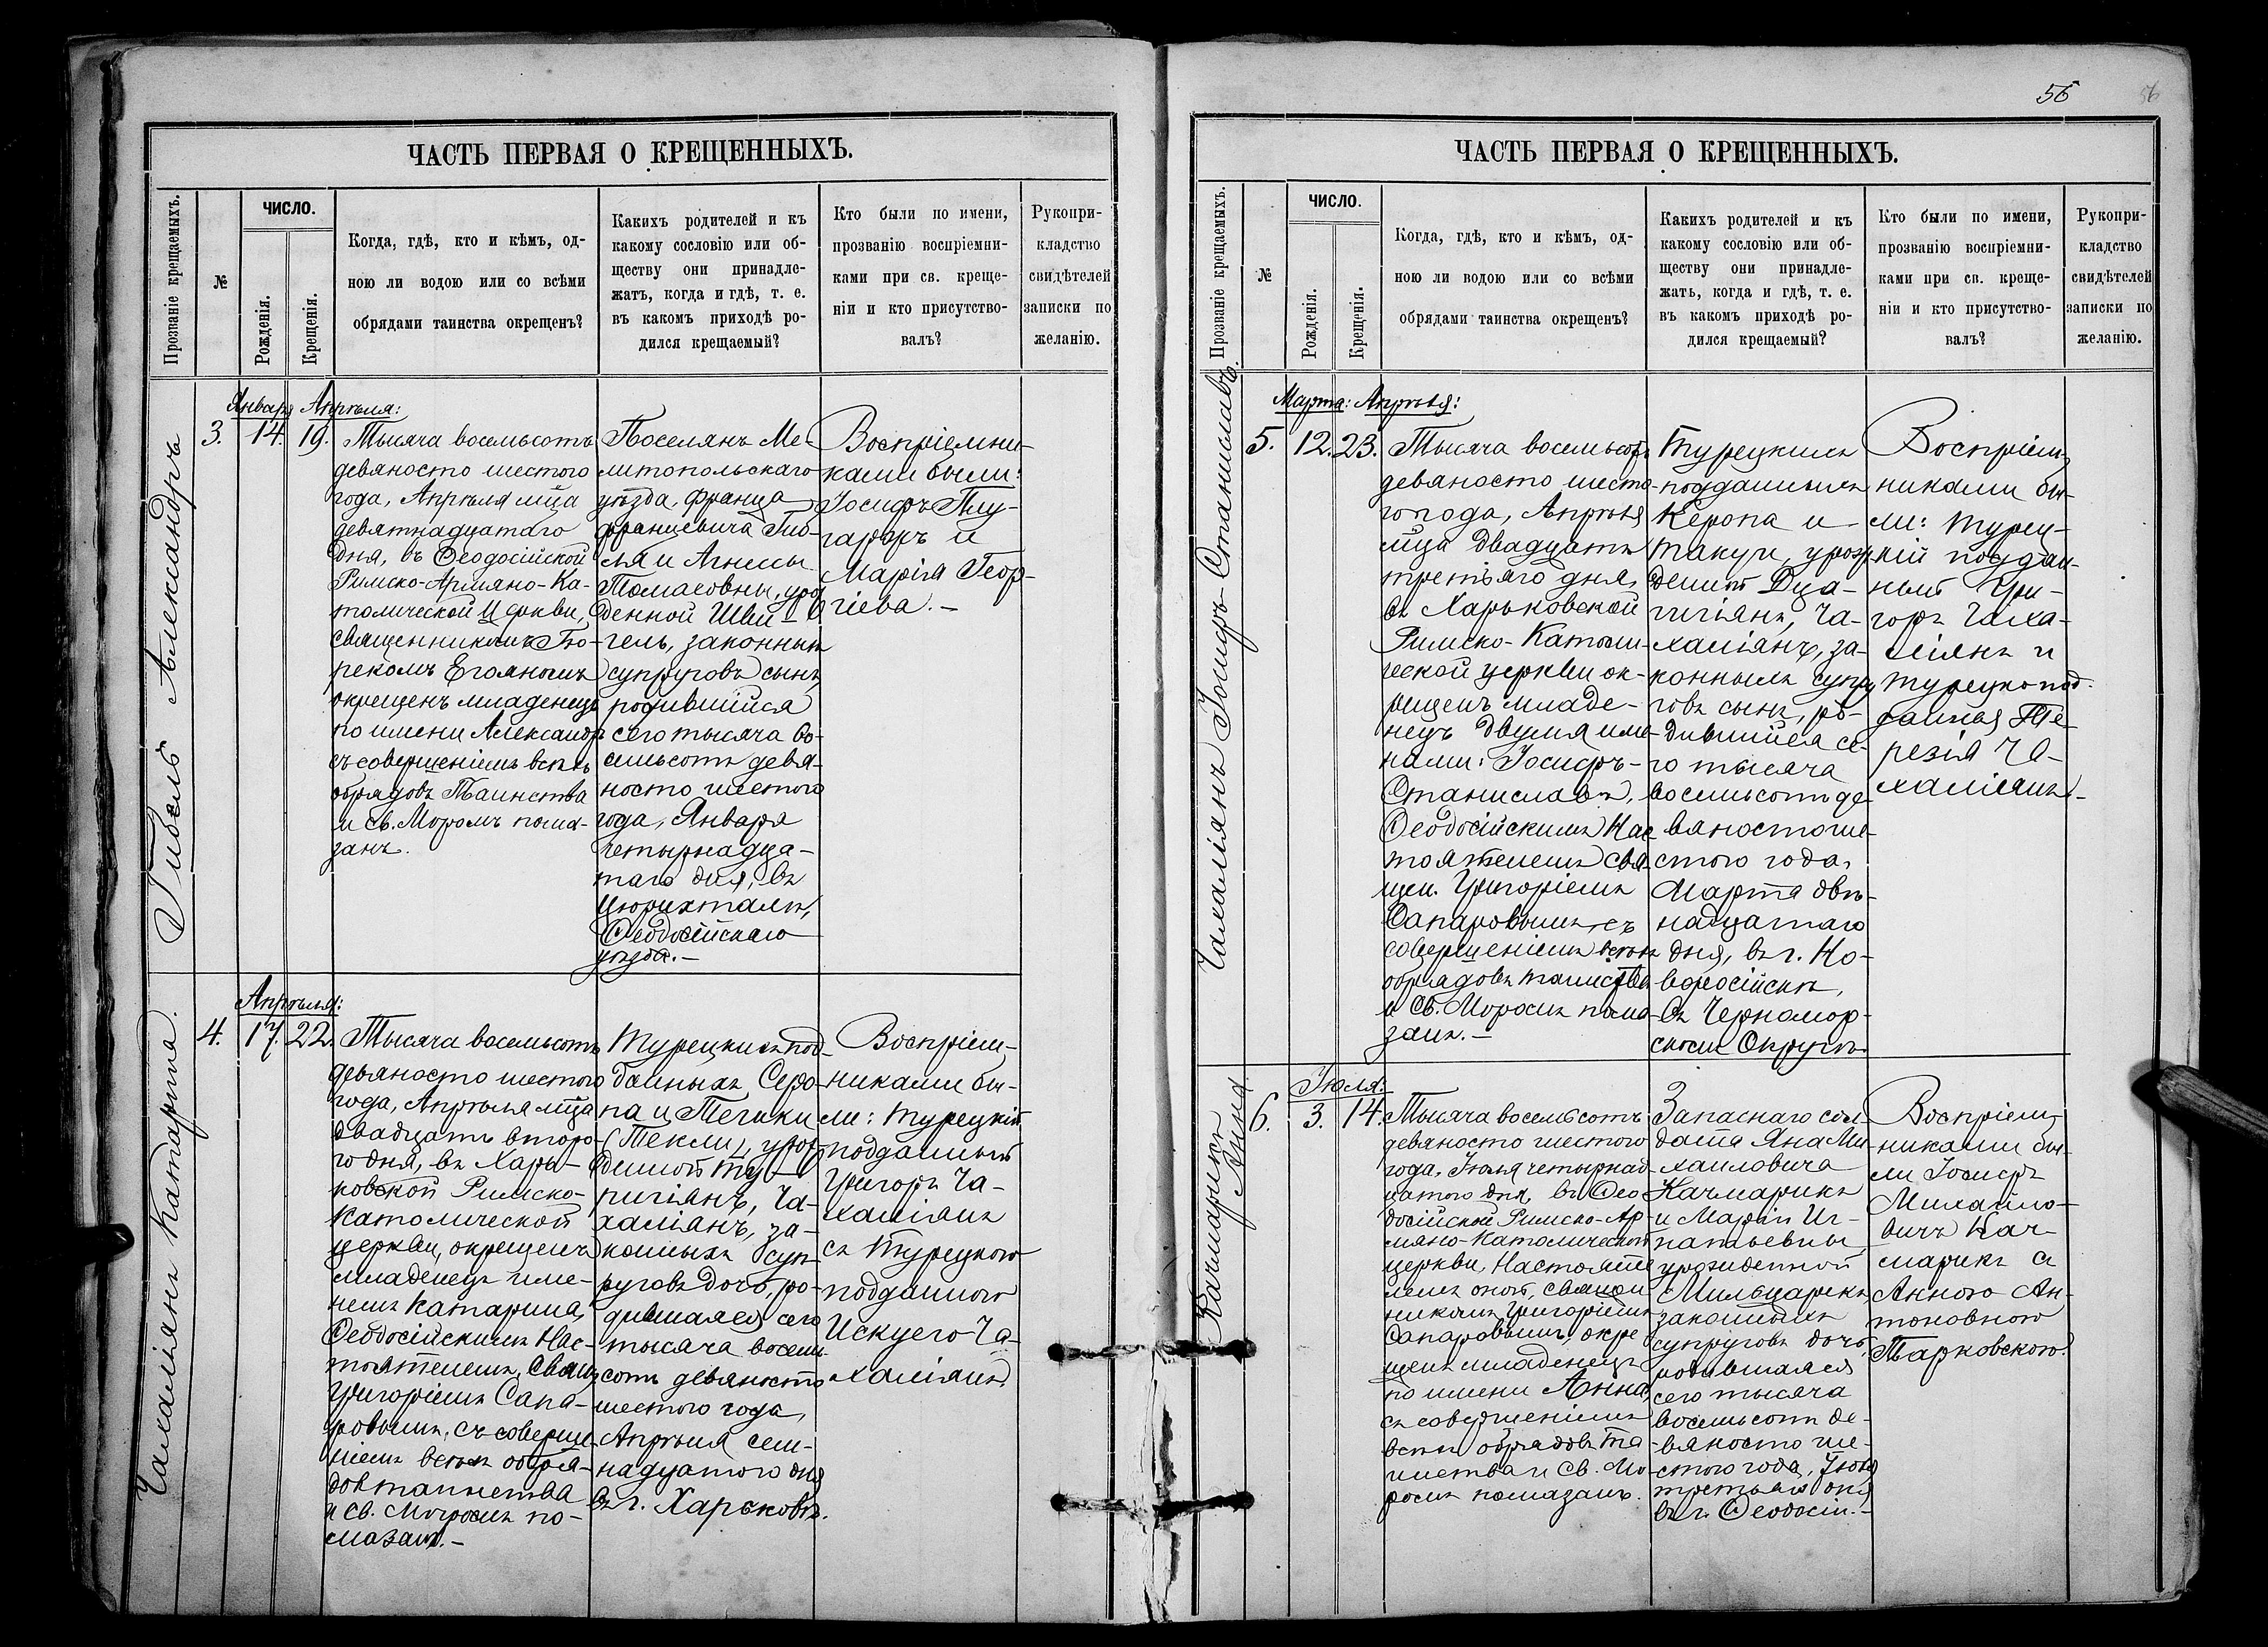 56
56
ЧАСТЬ ПЕРВАЯ О КРЕЩЕННЫХЪ.
Прозваніе крещаемыхъ.
№
ЧИСЛО.
Рожденія.
Крещенія.
Когда, гдѣ, кто и кѣмъ, од-
ною ли водою или со всѣми
обрядами таинства окрещенъ?
Какихъ родителей и къ
какому сословію или об-
ществу они принадле-
жатъ, когда и гдѣ, т. е.
въ какомъ приходѣ ро-
дился крещаемый?
Кто были по имени,
прозванію воспріемни-
ками при св. креще-
ніи и кто присутство-
валъ?
Рукопри-
кладство
свидѣтелей
записки по
желанію.
Гибель Александръ
3.
Января
14.
Апрѣля:
19.
Тысяча восемьсотъ
девяносто шестого
года, Апрѣля мѣца
девятнадцатаго
дня, въ Ѳеодосійской
Римско-Армяно-Ка-
толической Церкви,
священникомъ Бо-
рекомъ Егояномъ
окрещенъ младенецъ
по имени Александръ
съ совершеніемъ всѣхъ
обрядовъ Таинства
и Св. Мѵромъ пома-
занъ.
Поселянъ Ме-
литопольскаго
уѣзда, Франца
Францевича Гибе-
ля и Агнесы
Томасовны, уро
денной Шви-
гель, законныхъ
супруговъ сынъ,
родившійся
сего тысяча во-
семьсотъ девя-
носто шестого
года, Января
четырнадца-
таго дня, въ
Цюрихталѣ,
Ѳеодосійскаго
уѣзда.—
Воспріемни-
ками были:
Іосифъ
Марія Геор-
гіева.—
Чахаліянъ Катарина.
4.
Апрѣля:
17.
22.
Тысяча восемьсотъ
девяносто шестого
года, Апрѣля мѣца
двадцать второ-
го дня, въ Харь-
ковской Римско-
Католической
церкви, окрещенъ
младенецъ име-
немъ Катарина,
Ѳеодосійскимъ Нас-
тоятелемъ, Свящ
Григоріемъ Сапа-
ровымъ, съ соверше-
ніемъ всѣхъ обря-
довъ таинства
и Св. Мѵромъ по-
мазанъ.—
Турецкихъ под-
данныхъ Серо-
па и Тегики
(Теклы), урож-
денной Ту-
ригіянъ, Ча-
халіянъ, за-
конныхъ суп-
руговъ дочь, ро-
дившаяся сего
тысяча восемь
сотъ девяносто
шестого года,
Апрѣля сем-
надцатого дня
въ г. Харьковѣ.
Воспріем-
никами бы-
ли: Турецкій
подданный
Григоръ Ча-
халіянъ
съ Турецкого
подданного
Искуего Ча-
халіянъ.
ЧАСТЬ ПЕРВАЯ О КРЕЩЕННЫХЪ.
Прозваніе крещаемыхъ.
№
ЧИСЛО.
Рожденія.
Крещенія.
Когда, гдѣ, кто и кѣмъ, од-
ною ли водою или со всѣми
обрядами таинства окрещенъ?
Какихъ родителей и къ
какому сословію или об-
ществу они принадле-
жатъ, когда и гдѣ, т. е.
въ какомъ приходѣ ро-
дился крещаемый?
Кто были по имени,
прозванію воспріемни-
ками при св. креще-
ніи и кто присутство-
валъ?
Рукопри-
кладство
свидѣтелей
записки по
желанію.
Чахаліянъ Іосифъ-Станиславъ.
5.
Марта:
12.
Апрѣля:
23.
Тысяча восемьсотъ
девяносто шесто-
го года, Апрѣля
мѣца двадцать
третьяго дня,
въ Харьковской
Римско-Католи-
ческой церкви ок-
рещенъ младе-
нецъ двумя име-
нами: Іосифъ-
Станиславъ,
Ѳеодосійскимъ Нас
тоятелемъ Свя-
щен. Григоріемъ
Сапаровымъ, съ
совершеніемъ всѣхъ
обрядовъ таинства
и Св. Мѵромъ пома-
занъ.—
Турецкихъ
подданныхъ
Керопа и
Такуги, урож
денной Дца-
гигіянъ, Ча-
халіянъ, за-
конныхъ супру
говъ сынъ, ро-
дившійся се-
го тысяча
восемьсотъ де-
вяносто ше-
стого года,
Марта двѣ-
надцатаго
дня, въ г. Но-
вороссійскѣ,
въ Черномор-
скомъ Округѣ.
Воспріем-
никами бы-
ли: Турец-
кій поддан-
ный Гри-
горъ Чаха-
ліянъ и
турецкопод-
данная Те-
резія Ча-
халіянъ.—
Качмарикъ
Анна.
6.
Іюля:
3.
14.
Тысяча восемьсотъ
девяносто шестого
года, Іюля четырнад
цатого дня, въ Ѳео
досійской Римско-Ар-
мяно-Католической
церкви, Настояте
лемъ оной, Священ
никомъ Григоріемъ
Сапаровымъ, окре
щенъ младенецъ
по имени Анна,
съ совершеніемъ
всѣхъ обрядовъ та
инства и Св. Мѵ-
ромъ помазанъ.
Запаснаго сол-
дата Яна Ми-
хаиловича
Качмарикъ
и Маріи Иг-
натьевны
урожденной
Мильцарекъ,
законныхъ
супруговъ дочь,
родившаяся
сего тысяча
восемьсотъ де-
вяносто ше-
стого года, Іюля
третьяго дня
въ г. Ѳеодосіи.—
Воспріем-
никами бы-
ли Іосифъ
Михайло-
вичъ Кач-
марикъ съ
Анною Ан-
тоновною
Тарковскою.